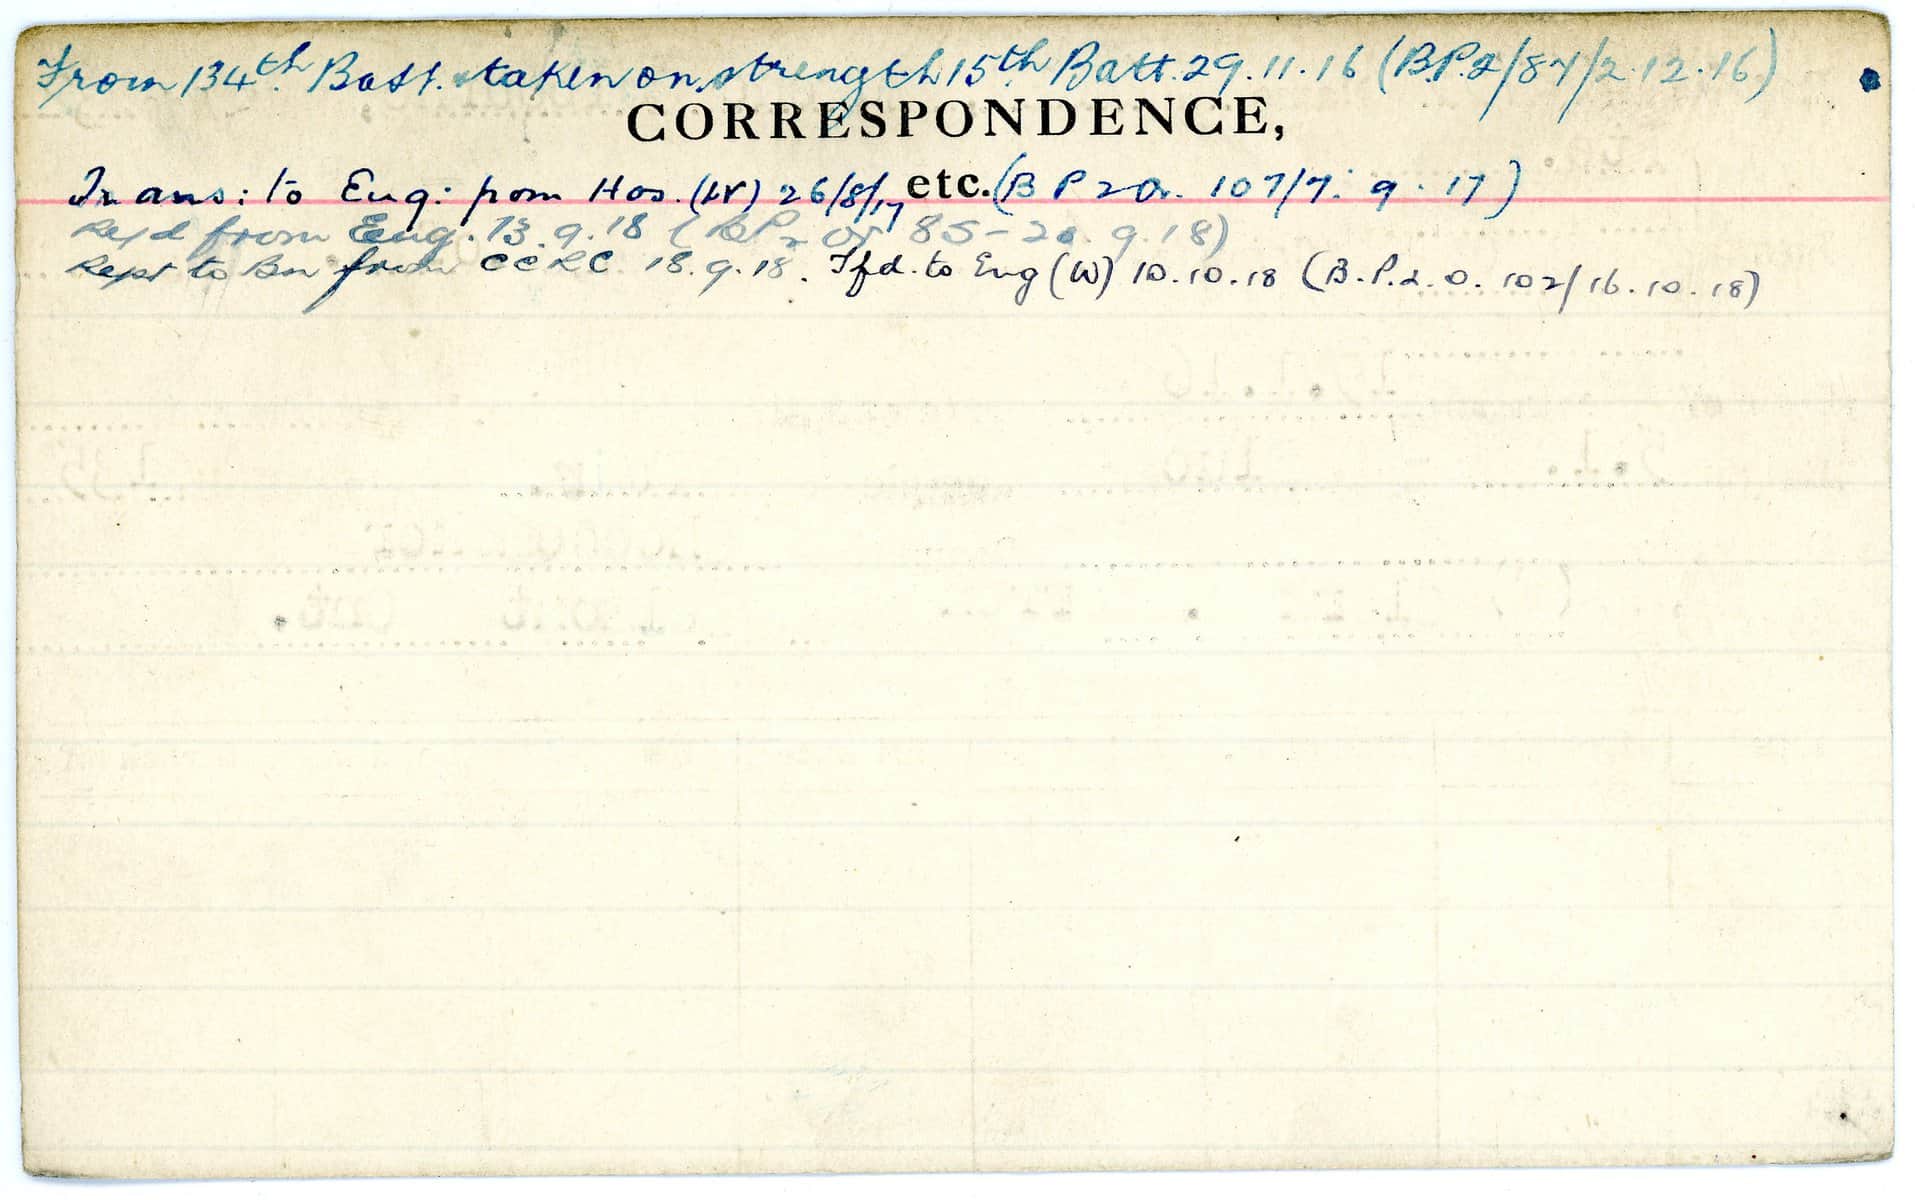 From 134th Batt. taken on strength 15th Batt. 29.11.16 (B.P.2/87/2.12.16)
CORRESPONDENCE,
Trans: to Eng: from Hos. (W) 26/8/17 etc. (B P 2 Or. 107/7. 9. 17)
Rejd from Eng. 13.9.18 (BP2 Or 85-20.9.18)
Rept to Bn from CCRC 18.9.18. Tfd. to Eng (W) 10.10.18 (B.P.2.O. 102/16.10.18)